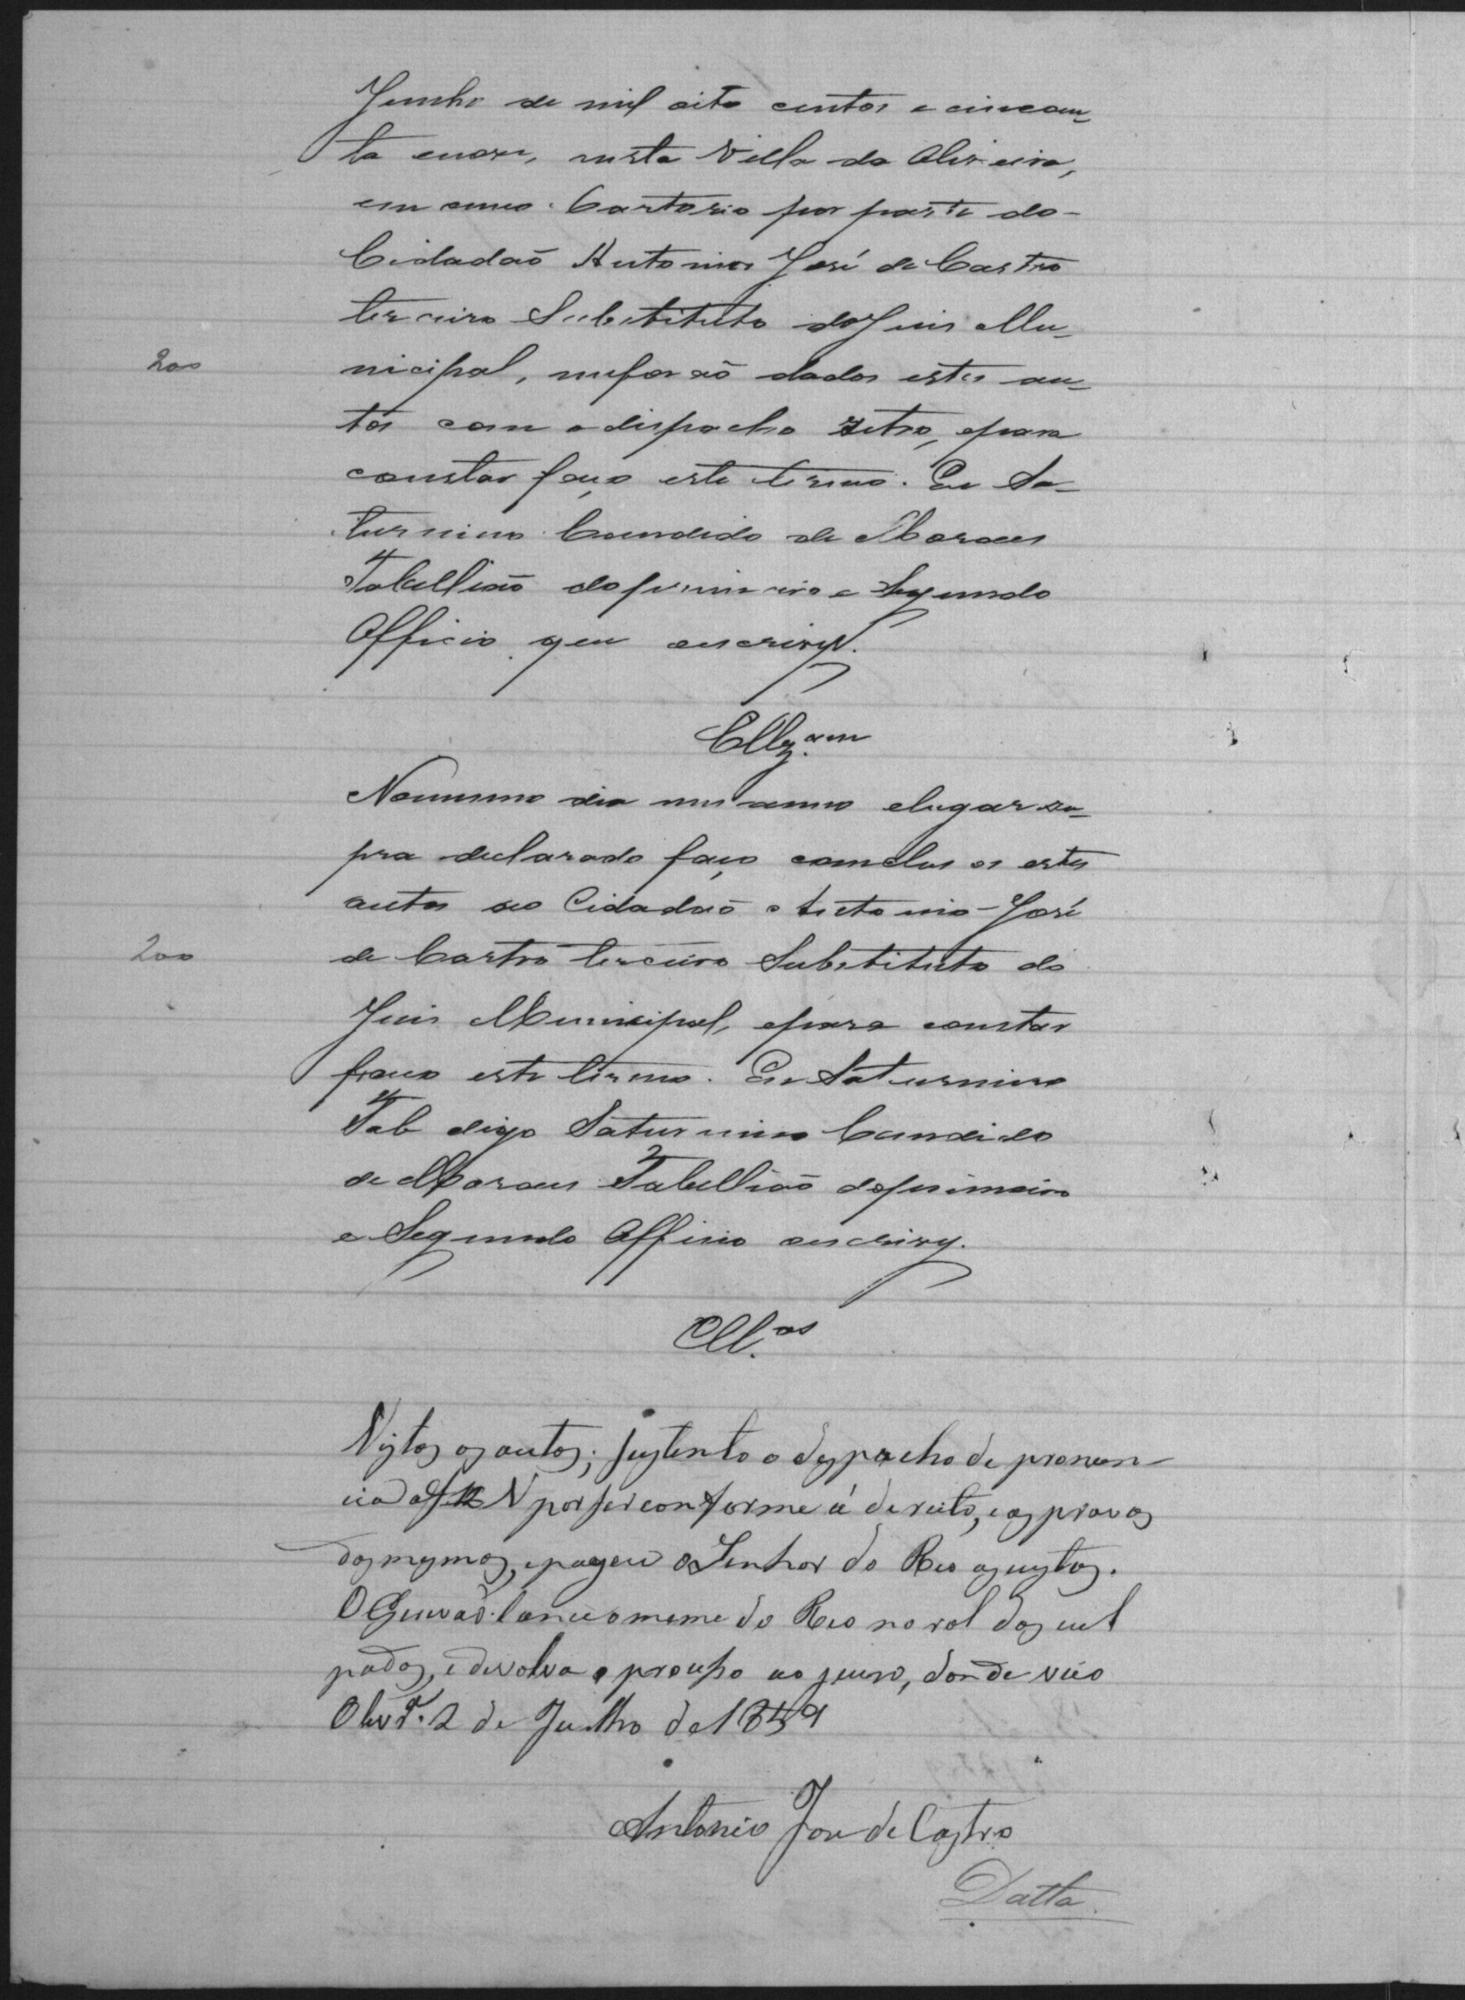 Junho de mil oito centos e cincoen-
ta enove, nesta Villa da Oliveira,
em meu Cartorio por parte do
Cidadaõ Antonio José de Castro
terceiro Substituto do Juis Mu-
200
nicipal, meforaõ dados estes au-
tos com o dispacho retro, epara
constar faço este termo. Eu Sa-
turnino Candido de Moraes
Tabelliaõ doprimeiro e Segundo
Officio que escrivy.
Cllz.am
Nomesmo dia mes anno elugar su-
pra declarado faço conclusos estes
autos ao Cidadaõ Antonio José
200
de Castro terceiro Substituto do
Juis Municipal, epara constar
faço este termo. Eu Saturnino
Tab digo Saturnino Candido
de Moraes Tabelliaõ doprimeiro
e Segundo Officio escrivy.
Cll.os
Vistos os autos; sustento o despacho de pronun-
cia af por ser conforme á direito, e as provas
dos mesmos, e pague o Senhor do Reo as custas.
O Escrivaõ lance o nome do Reo no rol dos cul
pados, e devolva o processo ao juiso, donde veio
Olivr.ª 2 de Julho de 1859
Antonio Jose de Castro
Datta.